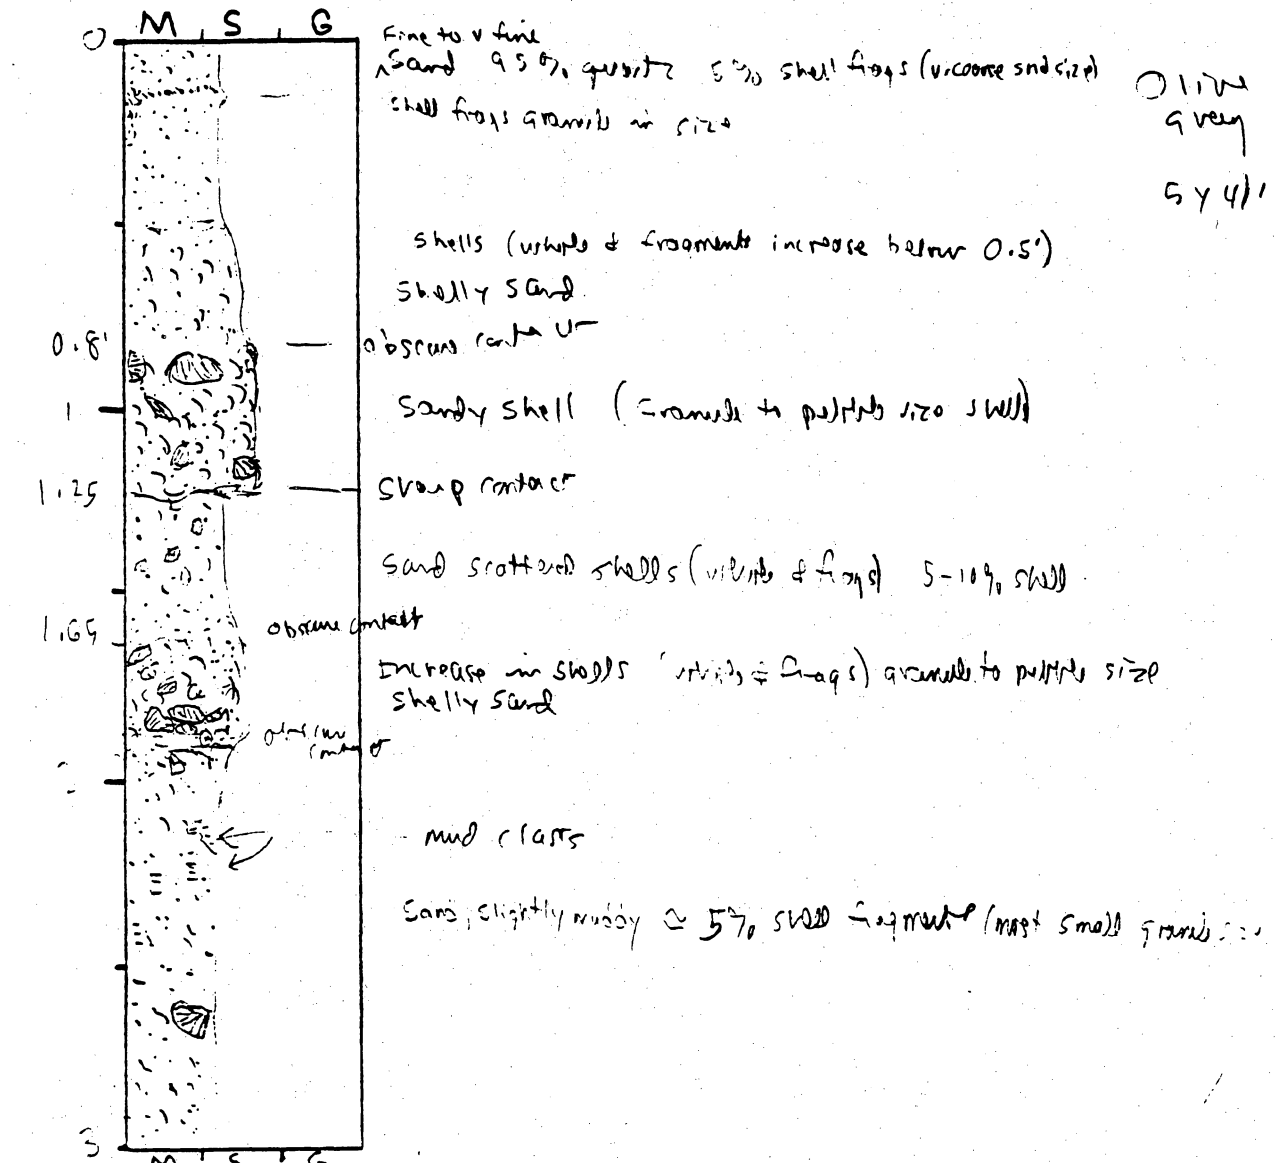 M S G
0
Fine to v fine
Sand 95% quartz 5% shell frags (v. coarse snd size)
Olive
grey
5Y 4/1
shell frags granule in size
shells (whole & fragments increase below 0.5')
Shelly sand
0.8'
obscure contact
1
Sandy shell (Granule to pebble size shell)
1.25
sharp contact
Sand scattered shells (whole & frags) 5-10% shell
1.65
obscure contact
Increase in shells (whole & frags) granule to pebble size
shelly sand
obscure
contact
mud clasts
Sand, slightly muddy ≃ 5% shell fragments (most small granule
3
M S G